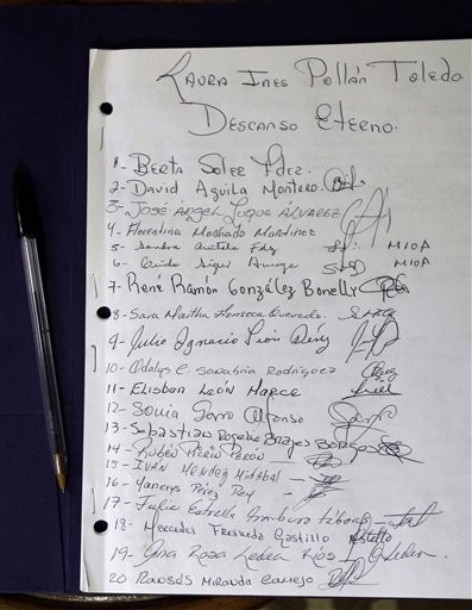 Laura Ines Pollán Toledo
Descanso Eterno.
1- Berta Soler Fdez.
2- David Aguila Montero.
3- José Ángel Luque Álvarez
4- Florentina Machado Martinez
5- Sandra
6-
7- René Ramón González Bonelly
8- Sara Martha Fonseca Quevedo.
9- Julio Ignacio León Pérez
10- Odalys C. Sanabria Rodriguez
11- Elisban León Marce
12- Sonia Garro Alfonso
13- Sebastian Rogelio
14- Rubén
15- Iván Mendez Mirabal
16- Yaneris Pérez Rey
17- Julia Estrella
18- Mercedes Fresneda Castillo
19- Ana Rosa Ledea Rios
20 Ramsés Miranda Camejo